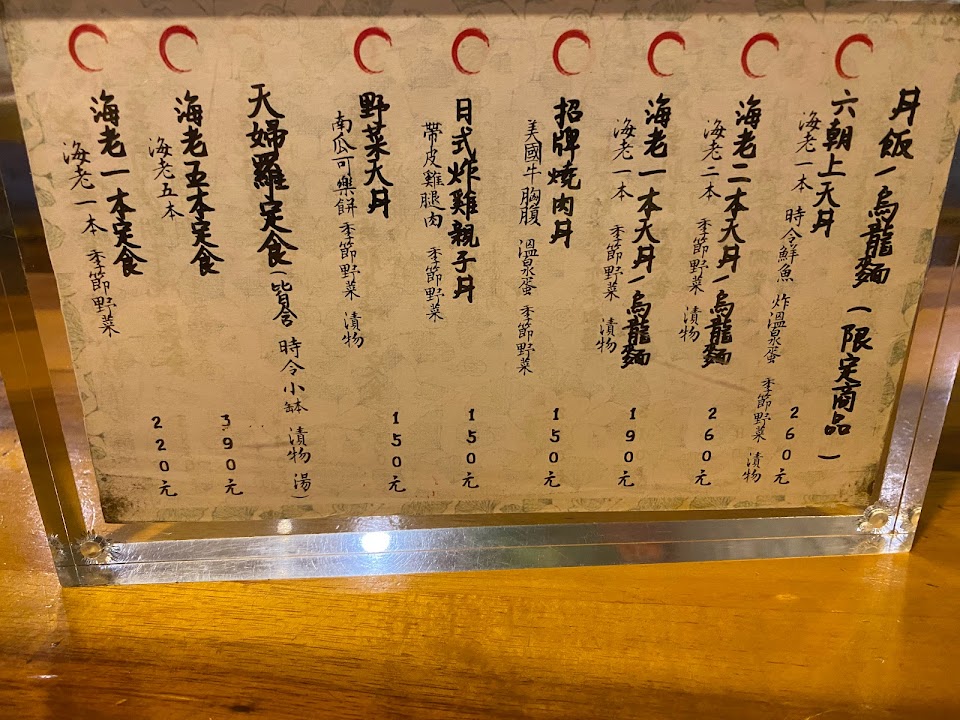 丼飯/烏龍麵(限定商品)
六朝上天丼
海老一本 時令鮮魚 炸溫泉蛋 季節野菜 漬物
260元
海老二本天丼/烏龍麵
海老二本 季節野菜 漬物
260元
海老一本天丼/烏龍麵
海老一本 季節野菜 漬物
190元
招牌燒肉丼
美國牛胸腹 溫泉蛋 季節野菜
150元
日式炸雞親子丼
帶皮雞腿肉 季節野菜
150元
野菜天丼
南瓜可樂餅 季節野菜 漬物
150元
天婦羅定食(皆含 時令小缽 漬物 湯)
海老五本定食
海老五本
390元
海老一本定食
海老一本 季節野菜
220元